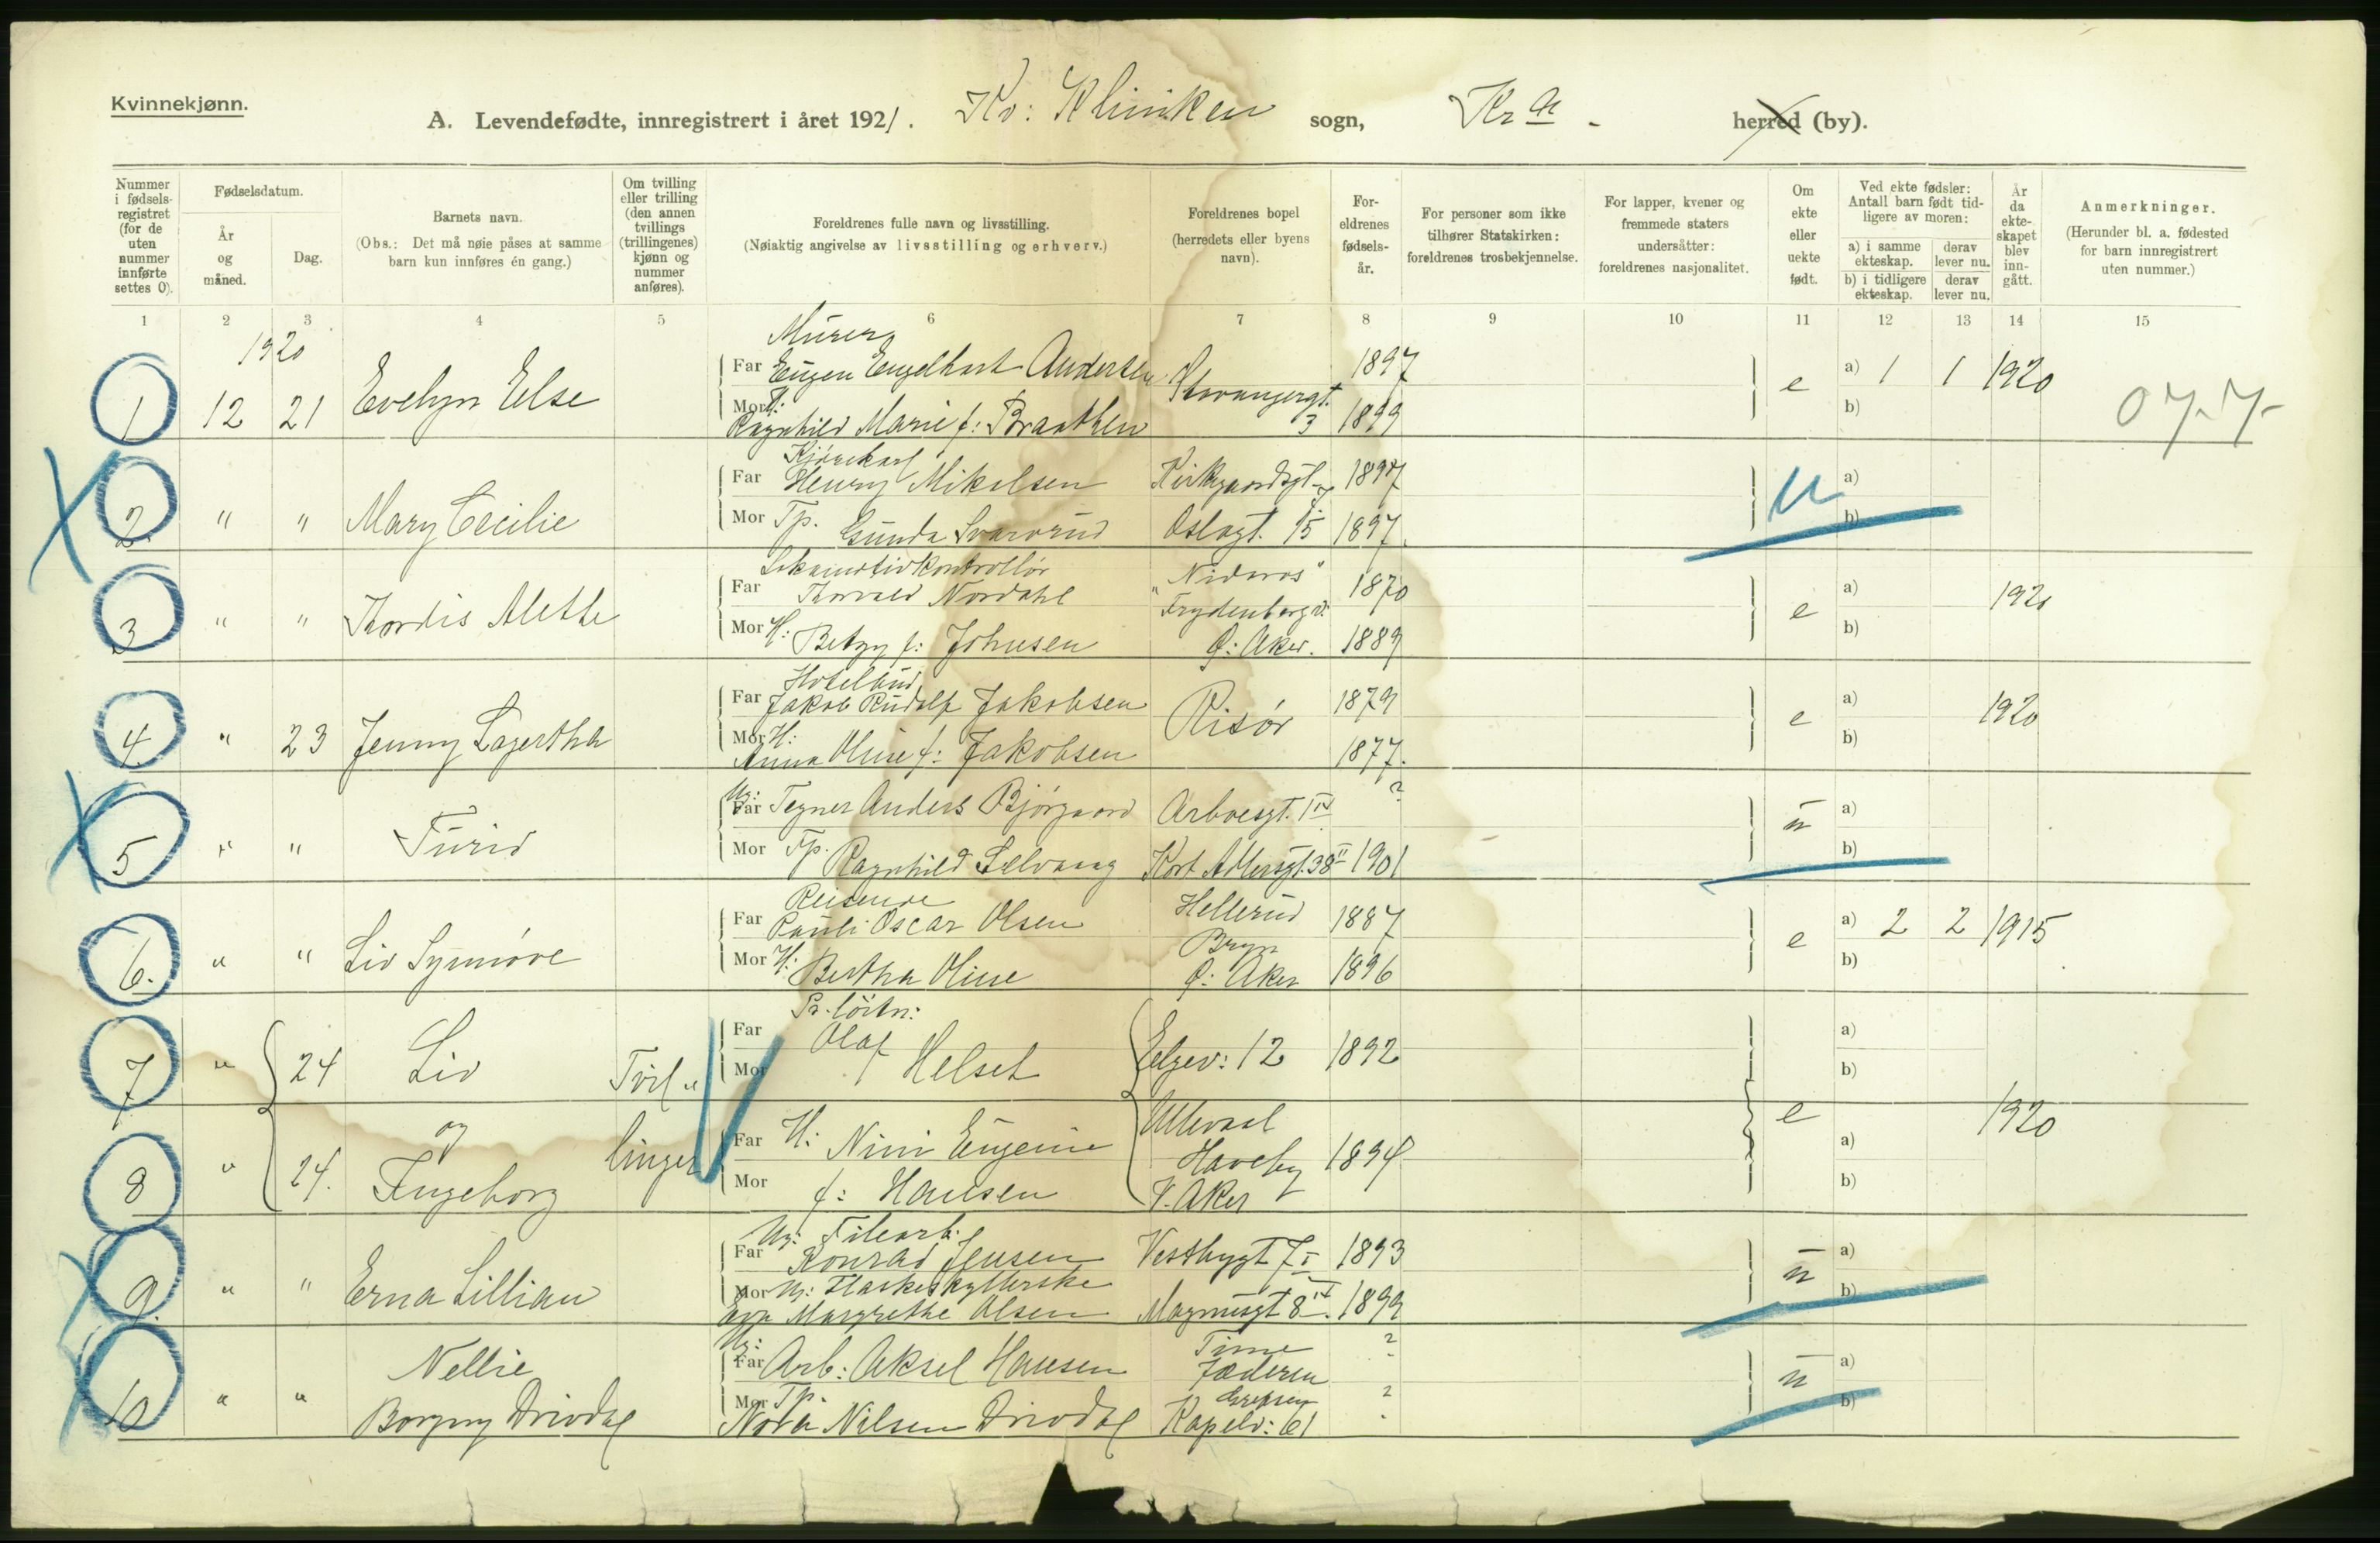 Kvinnekjønn.
A. Levendefødte, innregistrert i året 1921. Kv: Kliniken sogn, Kr a - herred (by).
Nummer i fødselsregistret (for de uten nummer innførte settes 0).
Fødselsdatum.
År og måned.
Dag.
Barnets navn.
(Obs.: Det må nøie påses at samme barn kun innføres én gang.)
Om tvilling eller trilling (den annen tvillings (trillingenes) kjønn og nummer anføres).
Foreldrenes fulle navn og livsstilling.
(Nøiaktig angivelse av livsstilling og erhverv.)
Foreldrenes bopel (herredets eller byens navn).
Foreldrenes fødselsår.
For personer som ikke tilhører Statskirken: foreldrenes trosbekjennelse.
For lapper, kvener og fremmede staters undersåtter: foreldrenes nasjonalitet.
Om ekte eller uekte født.
Ved ekte fødsler: Antall barn født tidligere av moren:
a) i samme ekteskap.
derav lever nu.
b) i tidligere ekteskap.
derav lever nu.
År da ekteskapet blev inngått.
Anmerkninger.
(Herunder bl. a. fødested for barn innregistrert uten nummer.)
1 2 3 4 5 6 7 8 9 10 11 12 13 14 15
1920
Murer
Far Eugen Engelhart Andersen 1897
1 12 21 Evelyn Else Stavangergt. 3 e a) 1 1 1920
Mor H: Ragnhild Marie f: Braathen 1899 b)
Kjørekarl
Far Henry Mikalsen Kirkegaardsgt. 7 1897 a)
2 " " Mary Cecilie u
Mor Tp. Gunda Svarvrud Oslogt. 15 1897. b)
Lokomotivkontrollør
Far Thorvald Nordahl "Nidaros" 1870 a) 1920
3 " " Thordis Alethe "Frydenberg v. e
Mor H: Betzy f: Johnsen Ø: Aker. 1889 b)
Hotelbud
Far Jakob Rudolf Jakobsen 1879 a) 1920
4 " 23 Jenny Lagertha Risør e
Mor H: Anna Oline f: Jakobsen 1877. b)
Ug: Far Tegner Anders Bjørgaard Arboesgt. 1 IV ? a)
5 " " Turid u
Mor Tp. Ragnhild Selvaag Kort Adlersgt. 38 II 1901 b)
Reisende
Far Pauli Oscar Olsen Hellerud 1887 a) 2 2 1915
6. " " Liv Synnøve Bryn e
Mor H: Bertha Oline Ø: Aker 1896 b)
Pr. löitn:
Far Olaf a)
7 " 24 Liv Tvil " Helset Elgev: 12 1892
Mor b)
og e 1920
Far H: Nini Eugenie Ullevaal a)
8 " 24. Ingeborg linger Haveby 1894
Mor f: Hansen V. Aker b)
Ug. Filearb.
Far Konrad Jensen Vestbygt 7 I 1893 a)
9. " " Erna Lillian u
Mor Ug: Flaskeskyllerske b)
Margrethe Olsen Magnusgt 8 IV. 1899
Ug: Far Arb: Aksel Hansen Time Jæderen ? a)
10 " " Nellie Borgny Drivdal u
Mor Tp. Nora Nilsen Drivdal Grefsen Kapelv: 61 ? b)